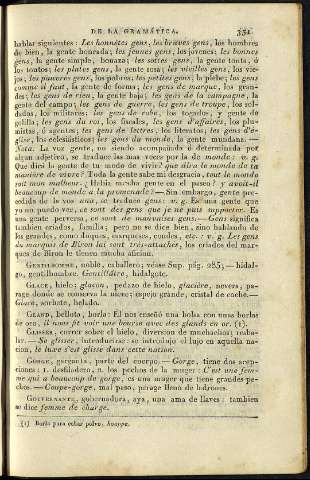 DE LA GRAMÁTICA. 331
hablar siguientes: Les honnêtes gens, les braves gens, los hombres
de bien, la gente honrada; les jeunes gens, los jóvenes; les bonnes
gens, la gente simple, bonaza; les sottes gens, la gente tonta, ó
los tontos; les plates gens, la gente sosa; les vieilles gens, los vie-
jos, les pauvres gens, los pobres; les petites gens, la plebe; les gens
comme il faut, la gente de forma; les gens de marque, los gran-
des; les gens de rien, la gente baja; les gens de la campagne, la
gente del campo; les gens de guerre, les gens de troupe, los sol-
dados, los militares; les gens de robe, los togados, y gente de
les gens du roi, los fiscales, les gens d'affaires, los
ó agentes; les gens de lettres, los literatos, les gens d'é-
glise, los eclesiásticos; les gens du monde, la gente mundana. —
Nota. La voz gente, no siendo acompañada ó determinada por
algun adjetivo, se traduce las mas veces por la de monde: v. g.
Qué dirá la gente de tu modo de vivir? que dira le monde de ta
manière de vivre? Toda la gente sabe mi desgracia, tout le monde
sait mon malheur; Habia mucha gente en el paseo? y avoit-il
beaucoup de monde à la promenade? — Sin embargo, gente pre-
cedida de la voz una, se traduce gens: v. g. Es una gente que
yo no puedo ver, ce sont des gens que je ne puis supporter. Es
una gente perversa, ce sont de mauvaises gens. — Gens significa
tambien criados, familia; pero no se dice bien, sino hablando de
los grandes, como duques, marqueses, condes, etc. v. g. Les gens
du marquis de Biron lui sont très-attachés, los criados del mar-
ques de Biron le tienen mucha aficion.
GENTILHOMME, noble, caballero; véase Sup. pág. 285; — hidal-
go, gentilhombre. Gentillâtre, hidalgote.
GLACE, hielo; glaçon, pedazo de hielo, glacière, nevera; pa-
rage donde se conserva la nieve; espejo grande, cristal de coche. —
Glace, sorbete, helado.
GLAND, bellota, borla: El nos enseñó una bolsa con unas borlas
de oro, il nous fit voir une bourse avec des glands en or. (1).
GLISSER, correr sobre el hielo, diversion de muchachos; resba-
lar. — Se glisser, introducirse: se introdujo el lujo en aquella na-
cion, le luxe s'est glissé dans cette nation.
GORGE, garganta, parte del cuerpo. — Gorge, tiene dos acep-
ciones: 1. desfiladero, 2. los pechos de la muger: C'est une fem-
me qui a beaucoup de gorge, es una muger que tiene grandes pe-
chos. — Coupe-gorge, mal paso, parage lleno de ladrones.
GOUVERNANTE, gobernadora, aya, una ama de llaves: tambien
se dice femme de charge.
(1) Borla para echar polvo, houppe.